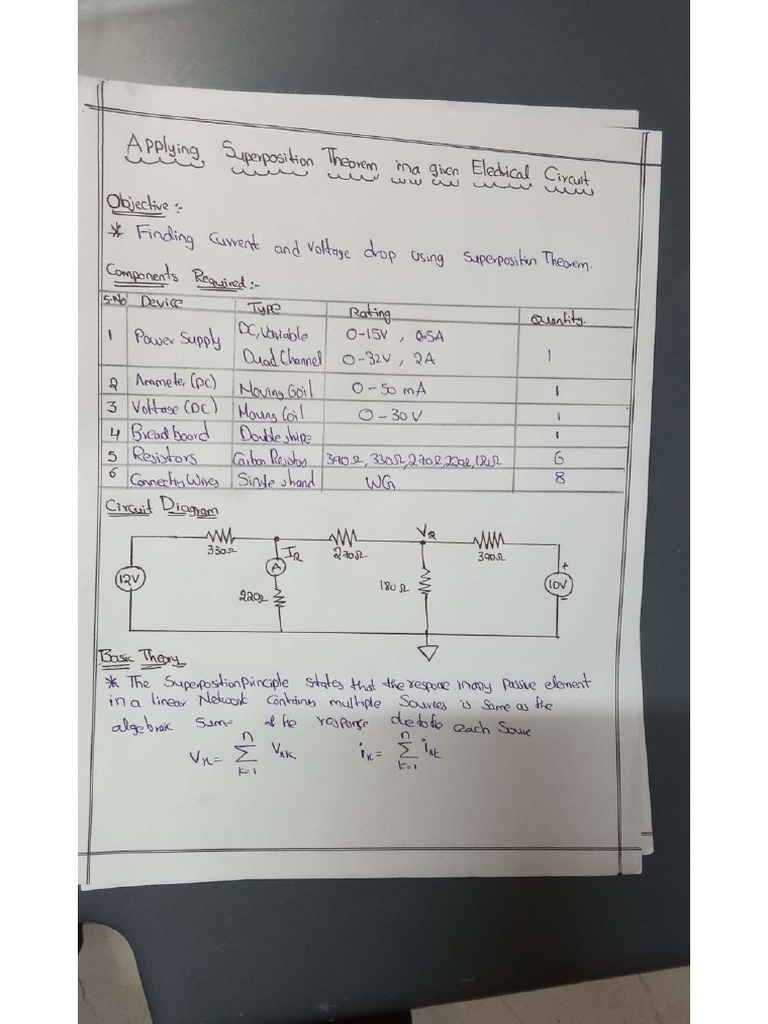 Applying Superposition Theorem in a given Electrical Circuit
Objective :-
* Finding Current and Voltage drop using Superposition Theorem.
Components Required :-
S.No Device Type Rating Quantity.
1 Power Supply DC, Variable 0-15V , 0.5A
Dual Channel 0-32V , 2A 1
2 Ammeter (DC) Moving Coil 0-50 mA 1
3 Voltage (DC) Moving Coil 0-30V 1
4 Bread board Double stripe 1
5 Resistors Carbon Resistor 390Ω, 330Ω, 270Ω, 220Ω, 180Ω 6
6 Connecting Wires Single strand WG 8
Circuit Diagram
330Ω I2 270Ω V2 390Ω
12V A 220Ω 180Ω + 10V -
Basic Theory
* The Superposition Principle states that the response in any passive element
in a linear Network Containing multiple Sources is same as the
algebraic sum of the response due to the each Source
Vx = n Σ k=1 Vxk ix = n Σ k=1 ixk